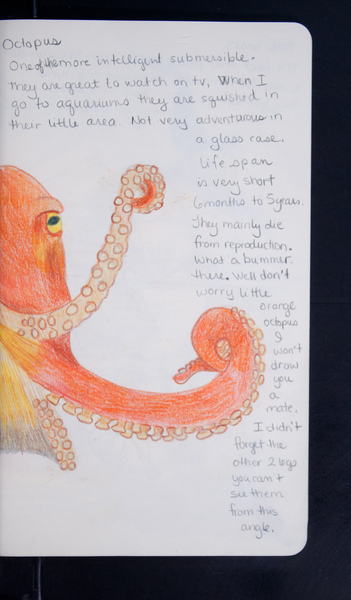 Octopus
One of the more intelligent submersible.
They are great to watch on tv. When I
go to aquariums they are squished in
their little area. Not very adventurous in
a glass case.
Life span
is very short
6 months to 5 years.
They mainly die
from reproduction.
What a bummer
there. Well don't
worry little
orange
octopus
I
won't
draw
you
a
mate.
I didn't
forget the
other 2 legs
you can't
see them
from this
angle.